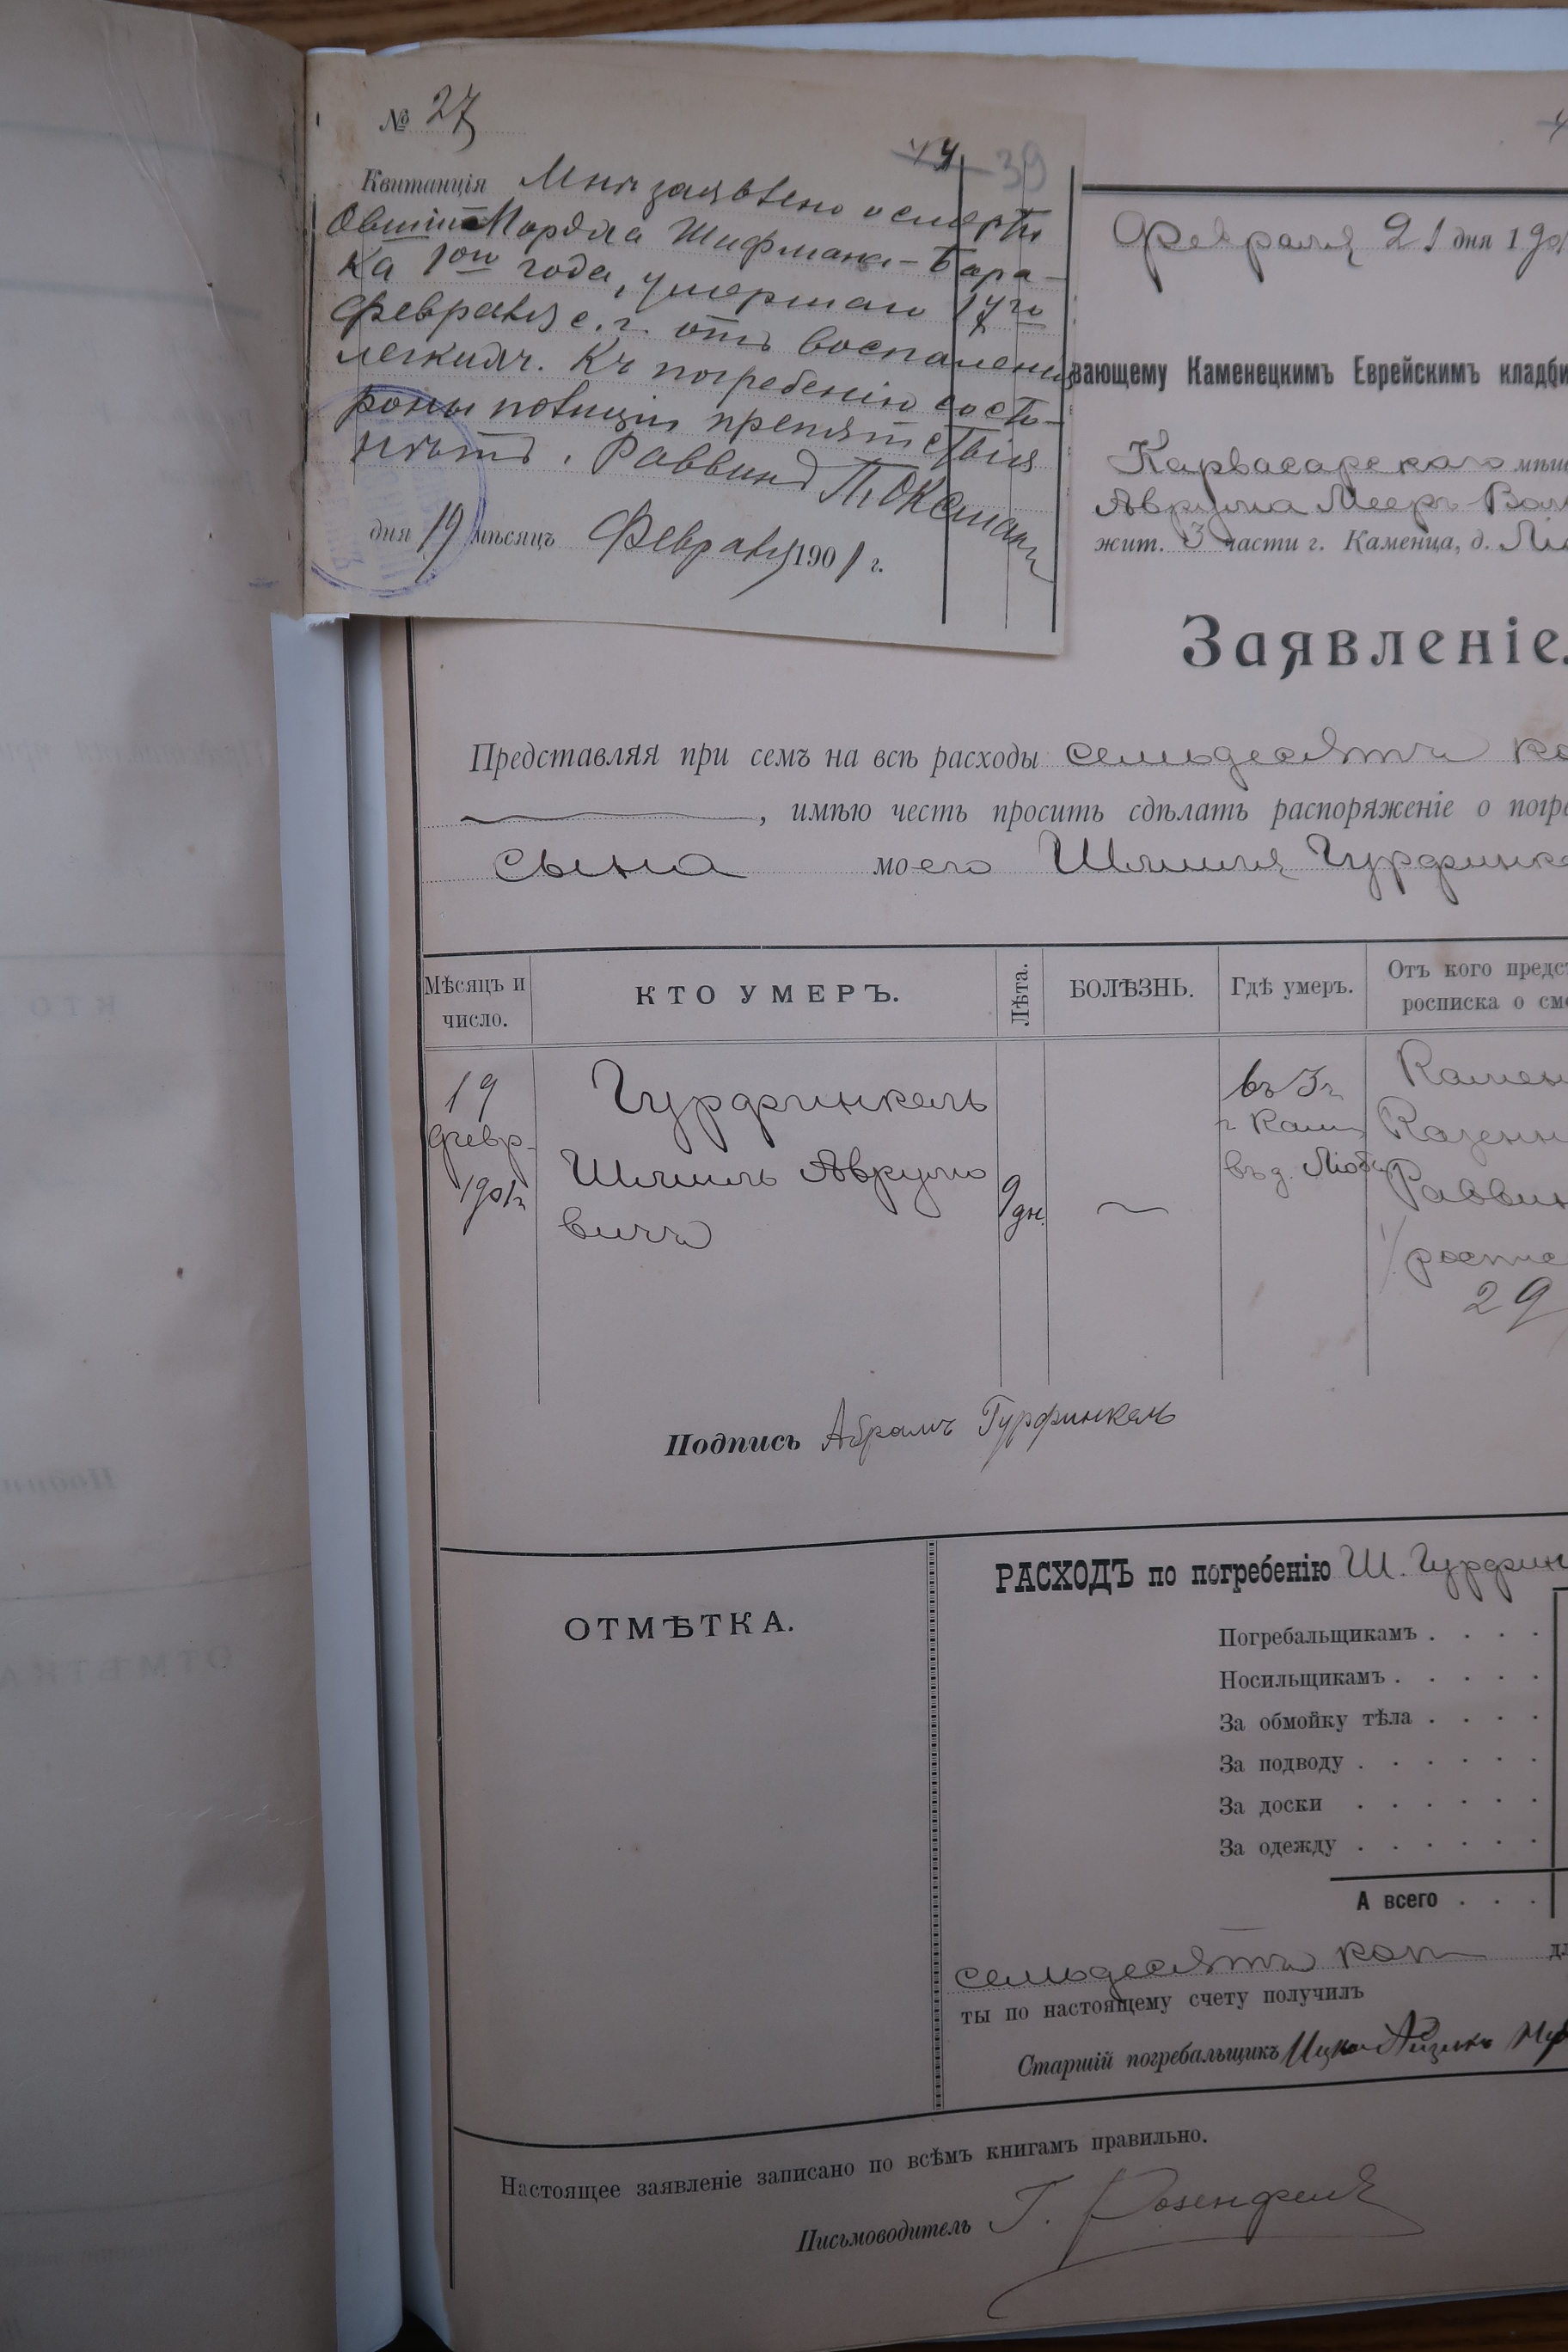 № 27
44 39
Квитанція Мнѣ заявлено о смерти
Овшія Мордка Шифмана-Бара-
ка 1ого года, умершаго 17го
Февраля с. г. отъ воспаленія
легкихъ. Къ погребенію со сто-
роны полиціи препятствія
нѣтъ. Раввинъ П. Оксманъ
дня 19 мѣсяцъ Февраля 1901 г.
Февраля 21 дня 190
вающему Каменецкимъ Еврейскимъ кладби
Карвасарскаго мѣщ
Аврума Меер
жит. 3 части г. Каменца, д.
Заявленіе.
Представляя при семъ на всѣ расходы семьдесятъ ко
, имѣю честь просить сдѣлать распоряженіе о погре
сына моего Шмиля Гурфинке
Мѣсяцъ и число.
КТО УМЕРЪ.
Лѣта.
БОЛѢЗНЬ.
Гдѣ умеръ.
Отъ кого предст
росписка о сме
19
февр.
1901 г.
Гурфинкель
Шмиль Аврумо
вичъ
9 дн.
въ 3 ч
г. Кам
въ д.
Камен
Казенн
Раввин
роспис
29
Подпись Абрамъ Гурфинкель
ОТМѢТКА.
РАСХОДЪ по погребенію Ш. Гурфин
Погребальщикамъ . . . .
Носильщикамъ . . . . .
За обмойку тѣла . . . .
За подводу . . . . . .
За доски . . . . . .
За одежду . . . . . .
А всего . . .
семьдесятъ коп
ты по настоящему счету получилъ
Старшій погребальщикъ Ицко Айзикъ
Настоящее заявленіе записано по всѣмъ книгамъ правильно.
Письмоводитель Г. Розенфельд